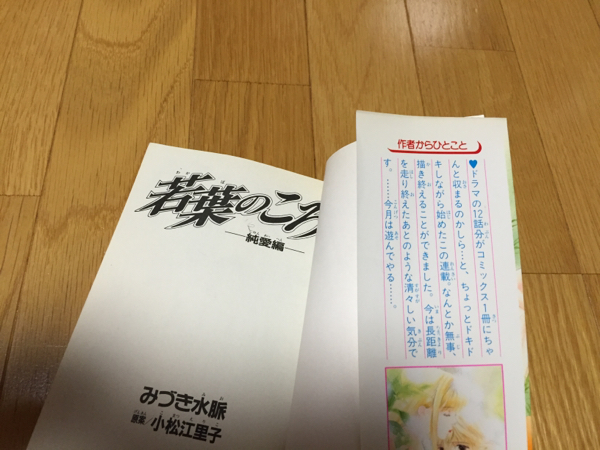 若葉のころ
純愛編
みづき水脈
原案/小松江里子
作者からひとこと
♥ドラマの12話分がコミックス1冊にちゃ
んと収まるのかしら…と、ちょっとドキド
キしながら始めたこの連載。なんとか無事、
描き終えることができました。今は長距離
を走り終えたあとのような清々しい気分で
す。……今月は遊んでやる……。